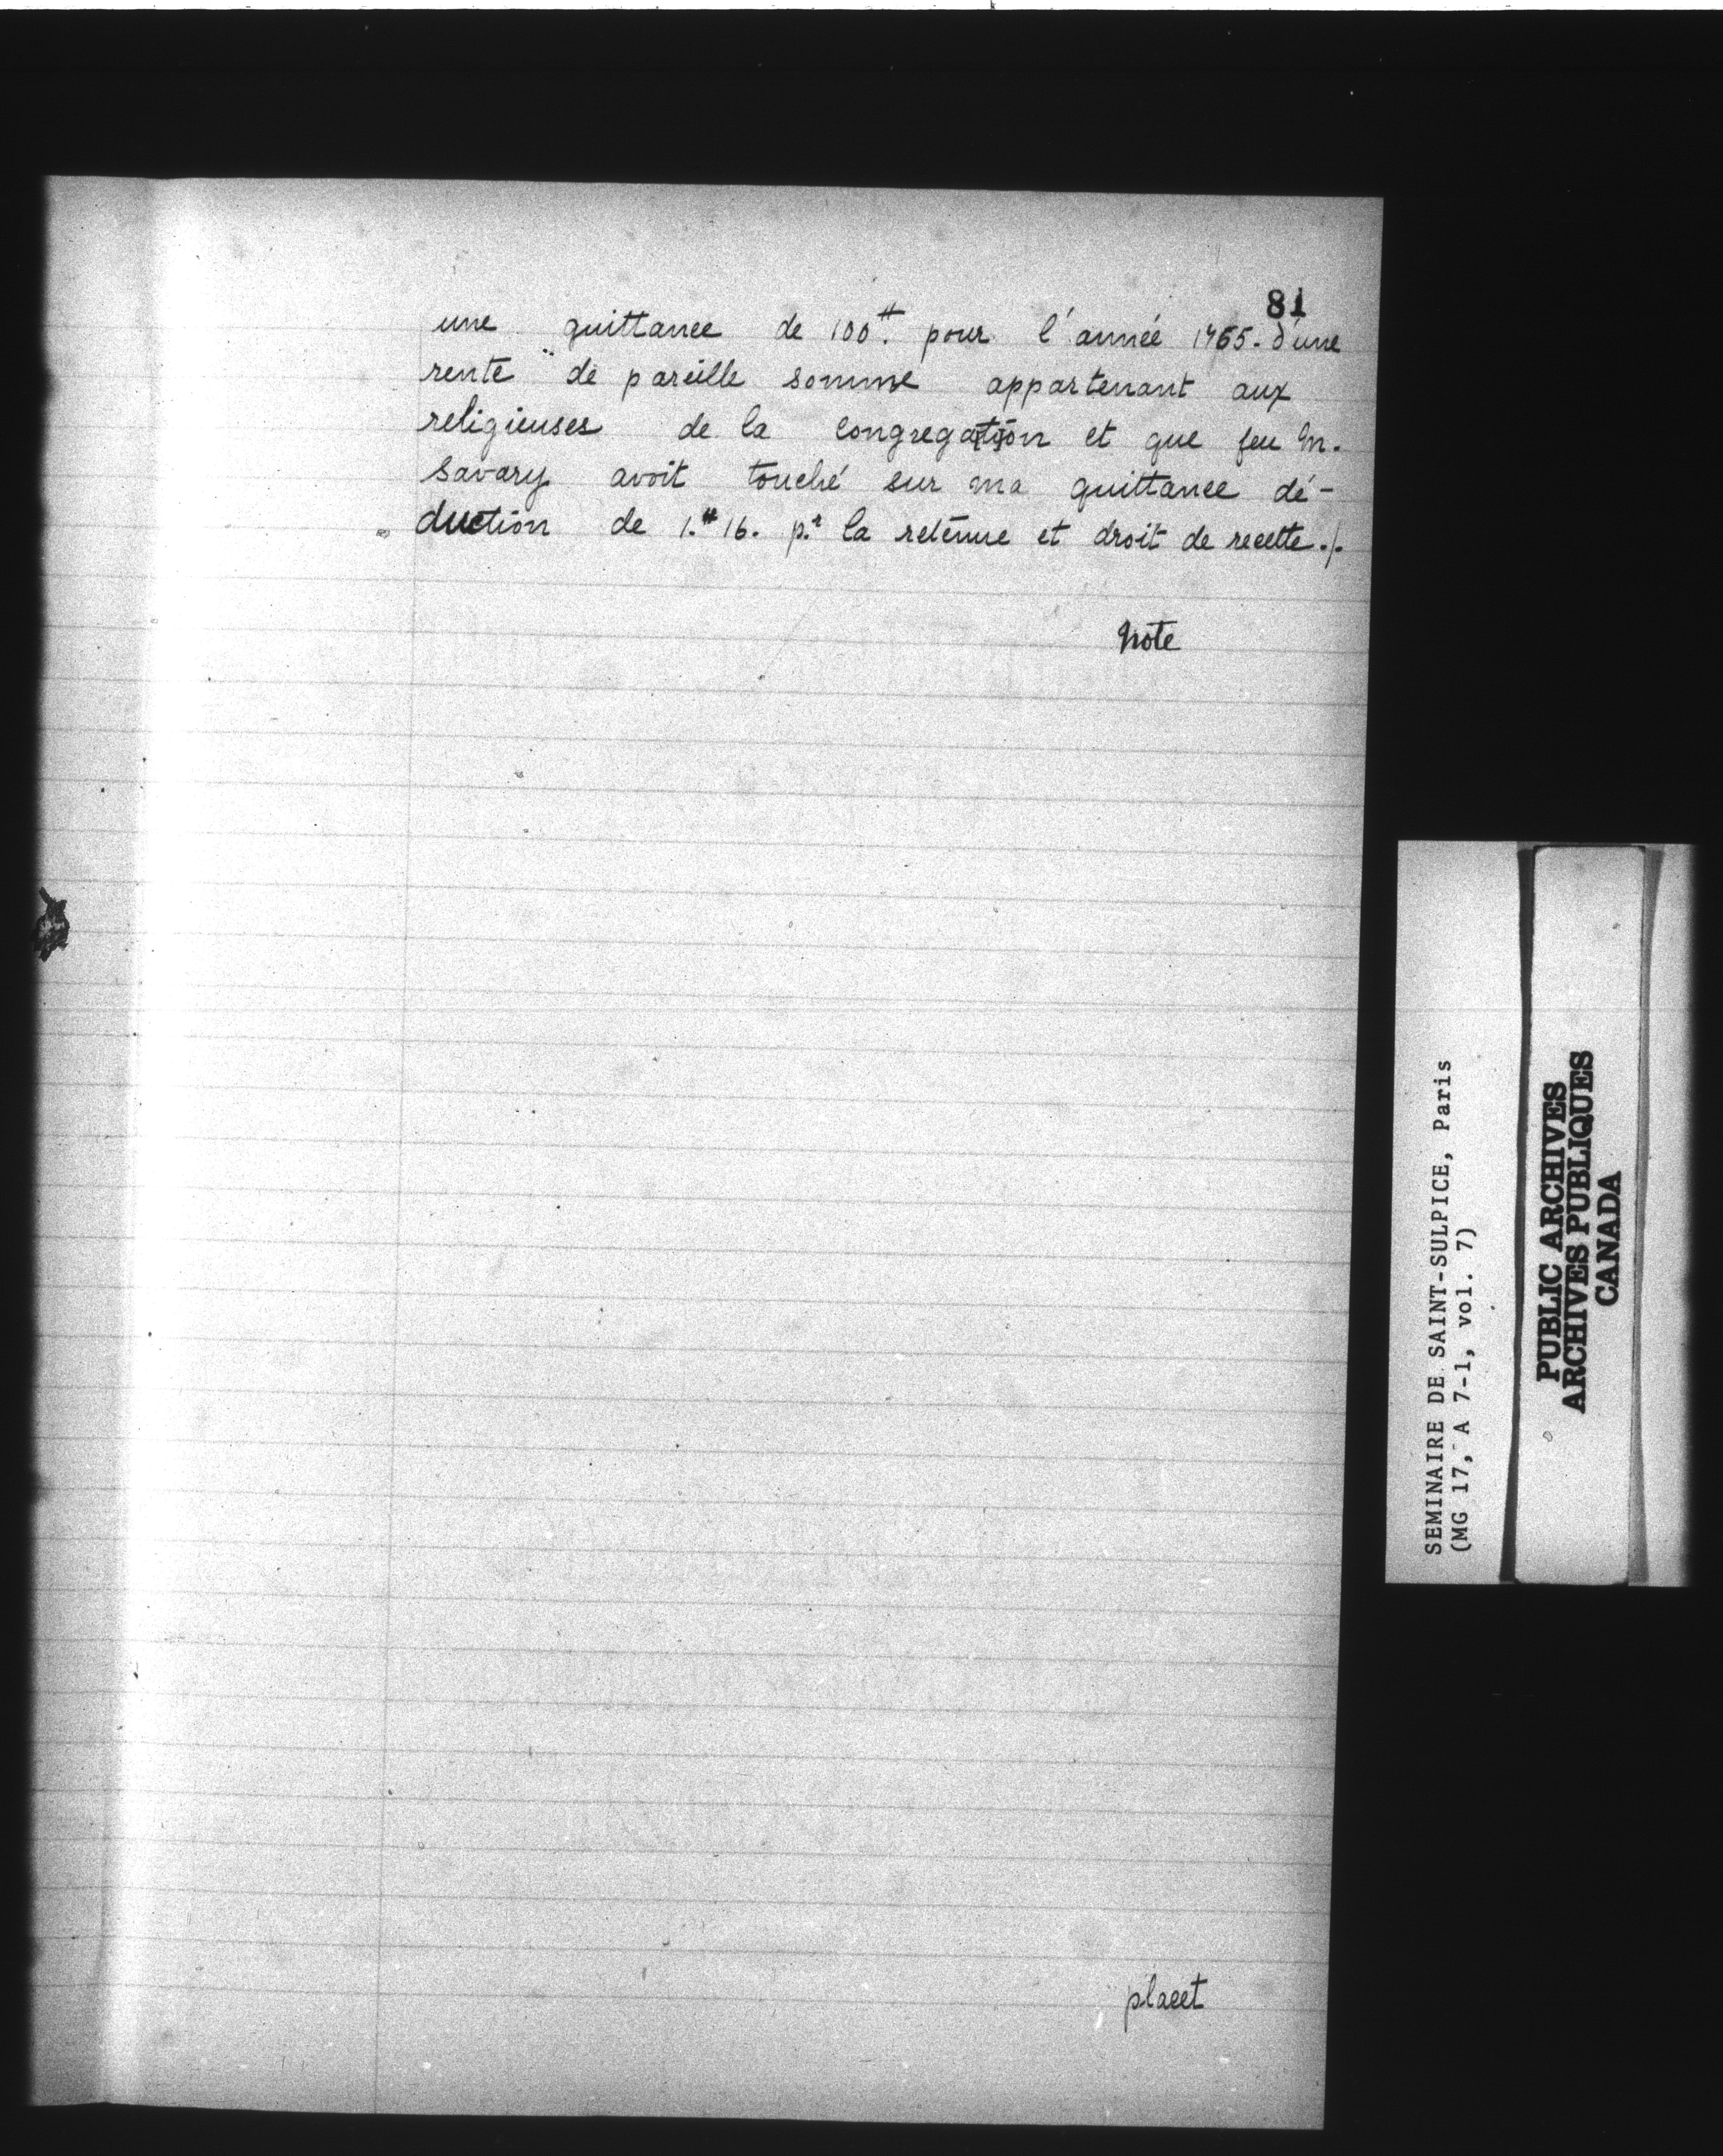 81
une quittance de 100.# pour l'année 1765. d'une
rente de pareille somme appartenant aux
religieuses de la congregation et que feu M.
Savary avoit touché sur ma quittance dé-
duction de 1.# 16. p.r la retenue et droit de recette./.
Note
placet
SEMINAIRE DE SAINT-SULPICE, Paris
(MG 17, A 7-1, vol. 7)
PUBLIC ARCHIVES
ARCHIVES PUBLIQUES
CANADA